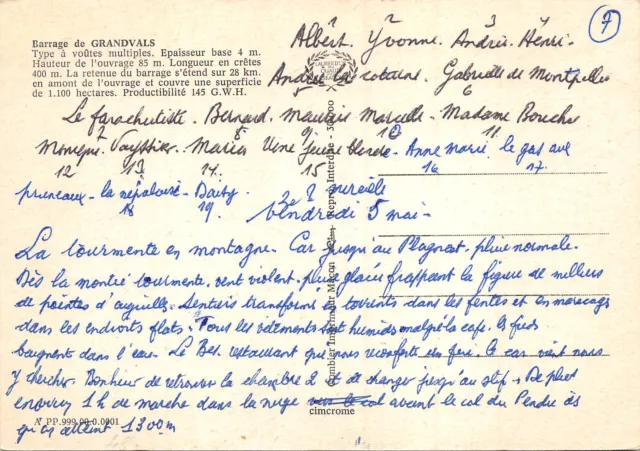 7
Barrage de GRANDVALS
Type à voûtes multiples. Epaisseur base 4 m.
Hauteur de l'ouvrage 85 m. Longueur en crêtes
400 m. La retenue du barrage s'étend sur 28 km.
en amont de l'ouvrage et couvre une superficie
de 1.100 hectares. Productibilité 145 G.W.H.
1 2 3 4
Albert. Yvonne. Andrée. Henri.
André la Gabrielle de Montpellier
5 6
Le parachutiste. Bernard. mauvais Marcelle. Madame
7 8 9 10 11
Monique. Maria Une jeune Anne marie. le gas aux
12 13 14 15 16 17
pruneaux. la népalaise. Daisy. mireille
18 19
Vendredi 5 mai.
La tourmente en montagne. Car jusqu'au Plagnat. pluie normale.
Dès la montée tourmente. vent violent. pluie glacée frappant la figure de milliers
de pointes d'aiguilles. Sentiers transformés en torrents dans les pentes et en marécages
dans les endroits plats. Tous les vêtements sont humides malgré la cape. les pieds
baignent dans l'eau. Le restaurant qui nous réconforte Le car vient nous
y chercher. Bonheur de retrouver la chambre 2 et de changer jusqu'au slip. De plus
environ 1 h de marche dans la neige avant le col du Pendu dès
qu'on atteint 1300 m
Combier Imprimeur Macon
Repro Interdite
cimcrome
A PP.999.00.0.0001